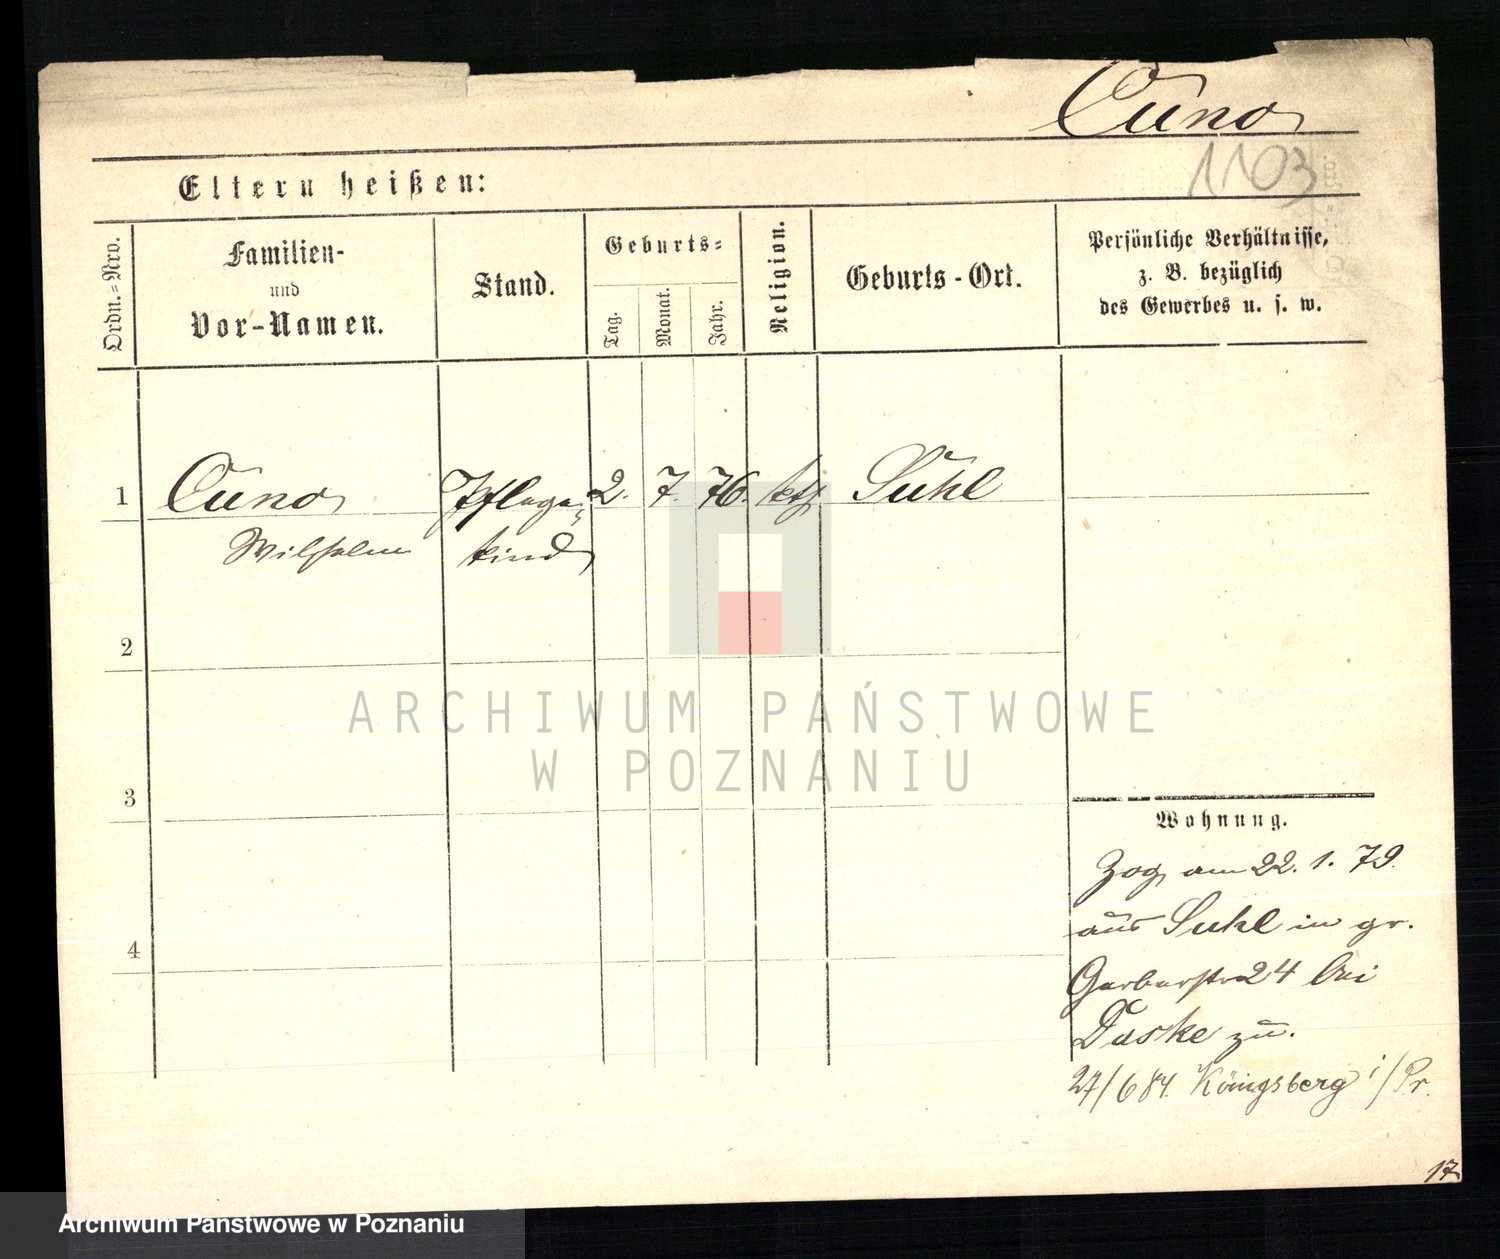 Cuno
1103
Eltern heißen:
Ordn.=Nro.
Familien-
und
Vor-Namen.
Stand.
Geburts=
Tag.
Monat.
Jahr.
Religion.
Geburts-Ort.
Persönliche Verhältnisse,
z. B. bezüglich
des Gewerbes u. s. w.
1 Cuno Pflege= 2. 7. 76. kth Suhl
Wilhelm kind
2
3
4
Wohnung.
Zog am 22. 1. 79.
aus Suhl in gr.
Gerberstr 24 bei
Daske zu.
27/6 84. Königsberg i/Pr.
17
ARCHIWUM PAŃSTWOWE
W POZNANIU
Archiwum Państwowe w Poznaniu